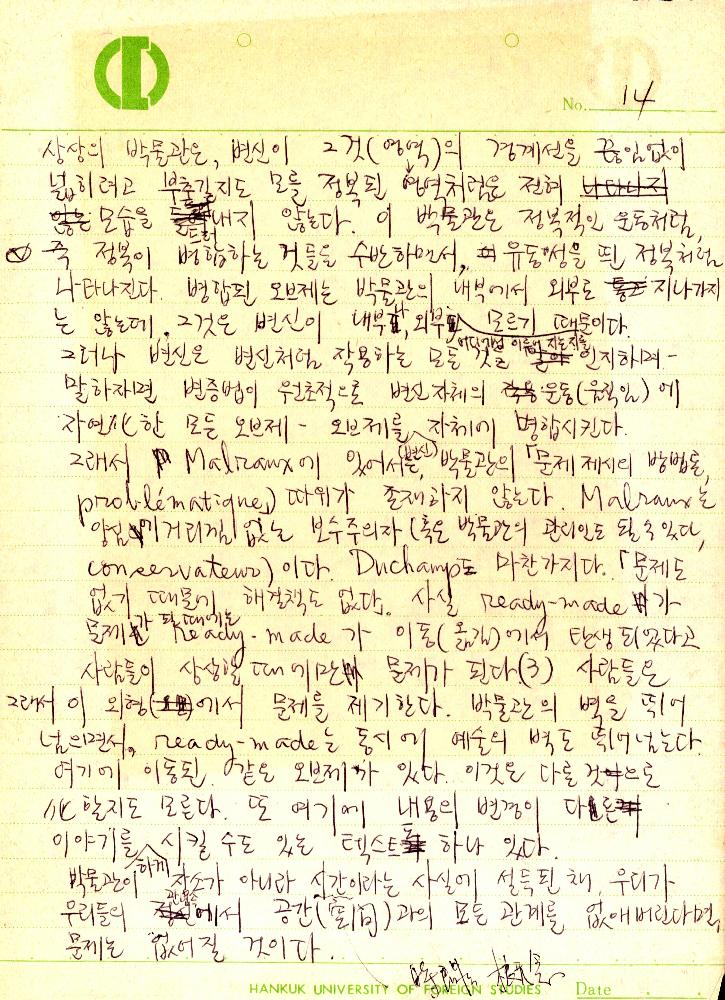 No. 14
상상의 박물관은, 변신이 그것(영역)의 경계선을 끊임없이
넓히려고 부출길지도 모를 정복된 영역처럼은 전혀
모습을 드러내지 않는다. 이 박물관은 정복적인 운동처럼,
즉 정복이 병합하는 것들을 수반하면서, 유동성을 띈 정복처럼
나타나진다. 병합된 오브제는 박물관의 내부에서 외부로 지나가지
는 않는데, 그것은 변신이 내부, 외부 모르기 때문이다.
그러나 변신은 변신처럼 작용하는 모든 것 인지하면 -
말하자면 변증법이 원초적으로 변신 자체의 운동(움직임)에
자연化한 모든 오브제 - 오브제를 자체에 병합시킨다.
그래서 Malraux에 있어서는, (변신) 박물관의 「문제 제시의 방법들,
problématique」 따위가 존재하지 않는다. Malraux는
거리낌 없는 보수주의자 (혹은 박물관의 관리인도 될 수 있다,
conservateur)이다. Duchamp도 마찬가지다. 「문제도
없기 때문에 해결책도 없다. 사실 ready-made가
문제가 될 때에는 ready-made가 이동(옮김)에서 탄생되었다고
사람들이 상상할 때에만 문제가 된다(3) 사람들은
그래서 이 외형에서 문제를 제기한다. 박물관의 벽을 뛰어
넘으면서, ready-made는 동시에 예술의 벽도 뛰어넘는다.
여기에 이동된 같은 오브제가 있다. 이것은 다를 것으로
化할지도 모른다. 또 여기에 내용의 변경이 다른
이야기를 하게 시킬 수도 있는 텍스트 하나 있다.
박물관이 장소가 아니라 시간이라는 사실에 설득된 채, 우리가
우리들의 관념속에서 공간(空間)과의 모든 관계를 없애버린다면,
문제는 없어질 것이다.
HANKUK UNIVERSITY OF FOREIGN STUDIES Date . .